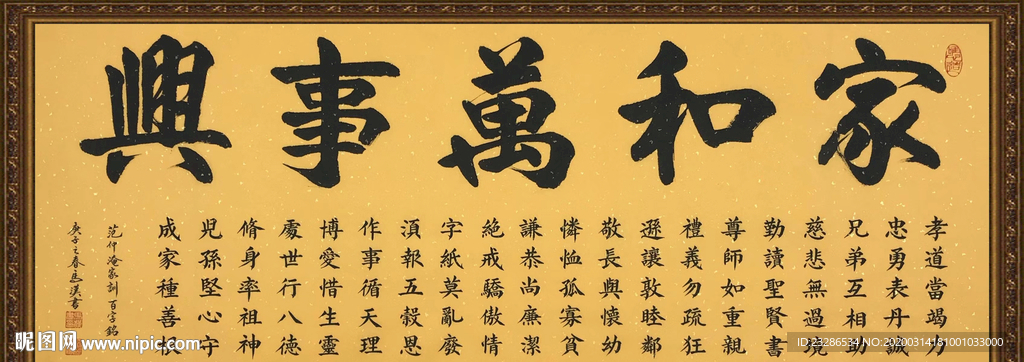 家和萬事興
孝道當竭力
忠勇表丹誠
兄弟互相助
慈悲無過境
勤讀聖賢書
尊師如重親
禮義勿疏狂
遜讓敦睦鄰
敬長與懷幼
憐恤孤寡貧
謙恭尚廉潔
絕戒驕傲情
字紙莫亂廢
湏報五穀恩
作事循天理
博愛惜生靈
處世行八德
脩身率祖神
児孫堅心守
成家種善根
范仲淹家訓百字銘
庚子之春馬漢書
昵图网 www.nipic.com
ID:23286534 NO:20200314181001033000